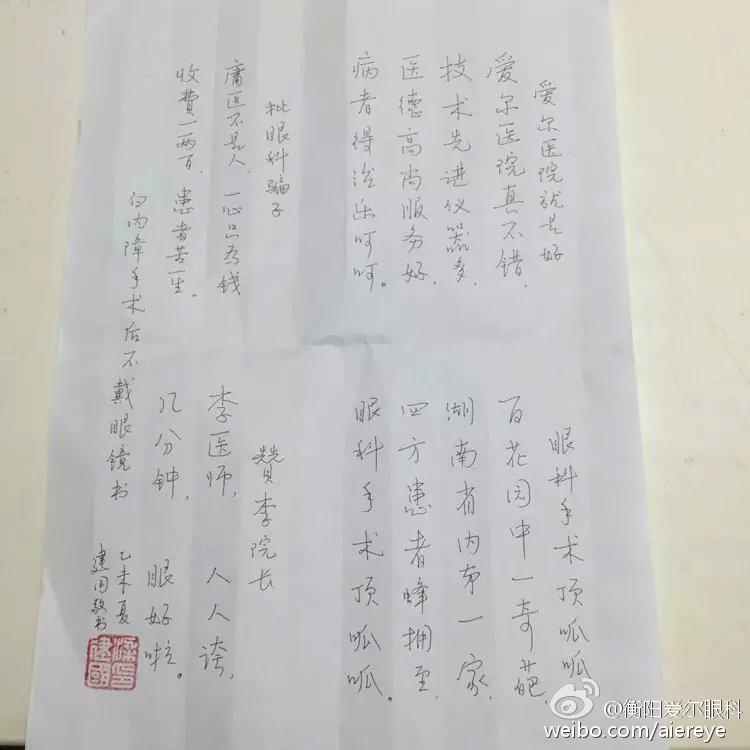 爱尔医院就是好
爱尔医院真不错，
技术先进仪器多，
医德高尚服务好，
病者得治乐呵呵。
眼科手术顶呱呱
百花园中一奇葩，
湖南省内第一家，
四方患者蜂拥至，
眼科手术顶呱呱。
批眼科骗子
庸医不是人，一心只为钱
收费一两百，患者苦一生。
赞李院长
李医师，人人誇，
几分钟，眼好啦。
白内障手术后不戴眼镜书
乙未夏
建国敬书
建國
@衡阳爱尔眼科
weibo.com/aiereye